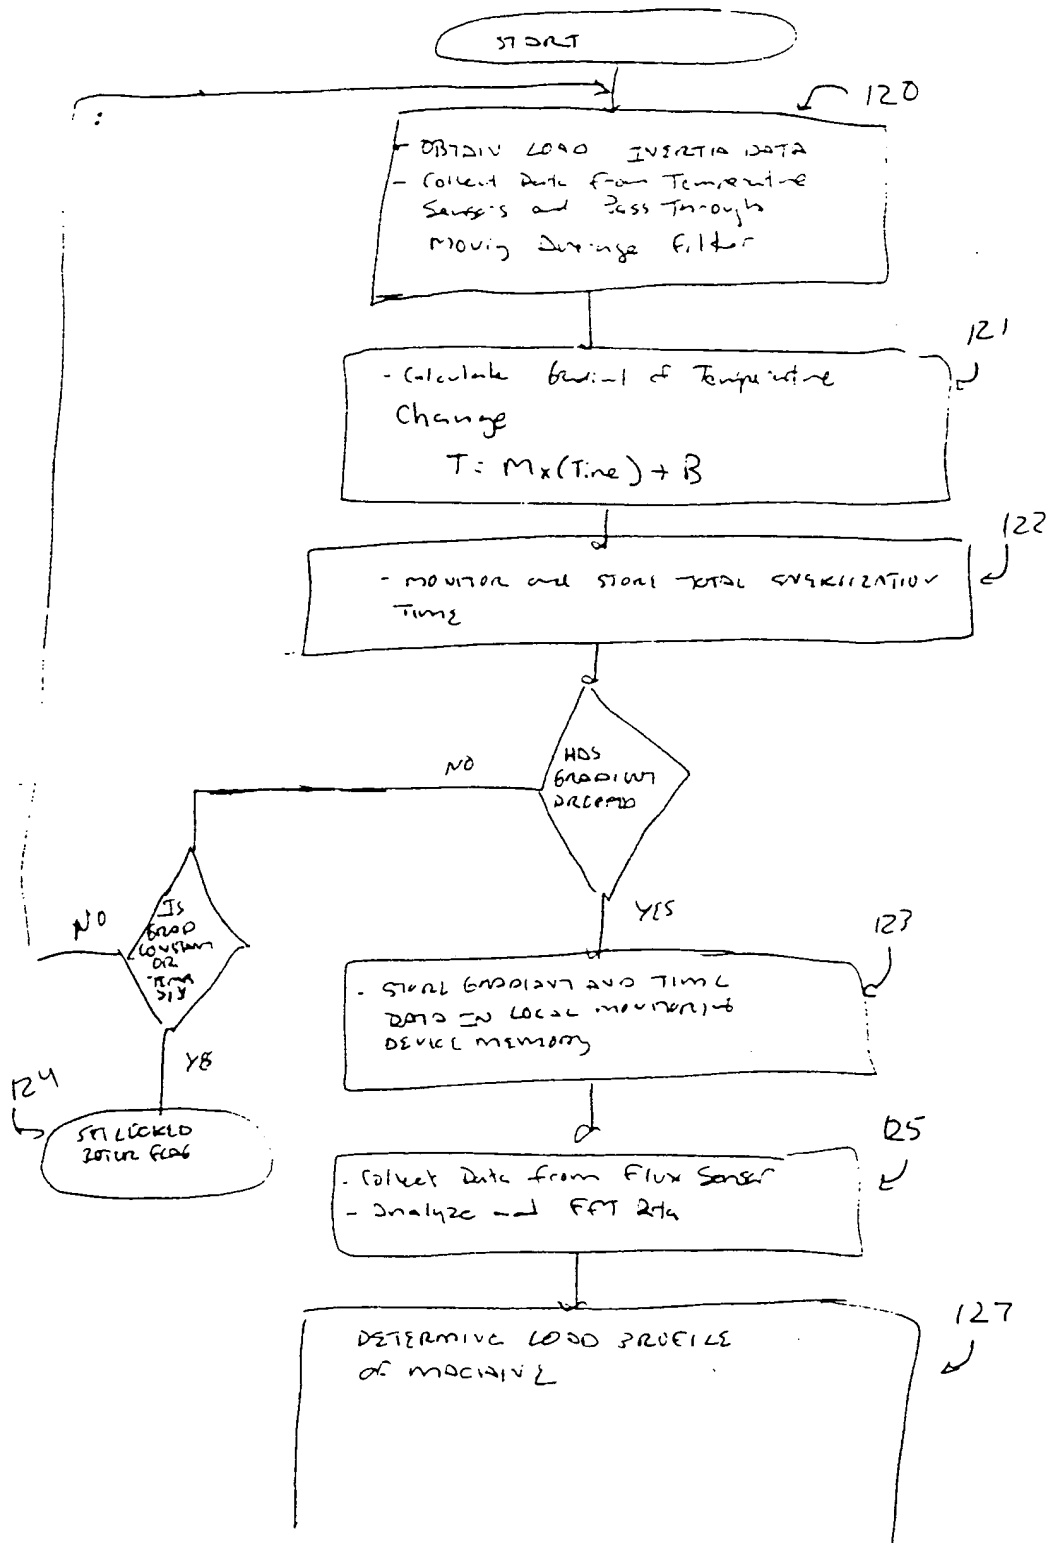 START
120
- OBTAIN LOAD INERTIA DATA
- Collect Data from Temperature
Sensors and Pass Through
Moving Average Filter
121
- Calculate Gradient of Temperature
Change
T = M x (Time) + B
122
- MONITOR and STORE TOTAL ENERGIZATION
TIME
HAS
GRADIENT
DROPPED
NO
YES
IS
GRAD
CONSTANT
OR
NO
YES
124
SET LOCKED
ROTOR FLAG
123
- STORE GRADIENT AND TIME
DATA IN LOCAL MONITORING
DEVICE MEMORY
125
- Collect Data from Flux Sensor
- Analyze and FFT Data
127
DETERMINE LOAD PROFILE
OF MACHINE